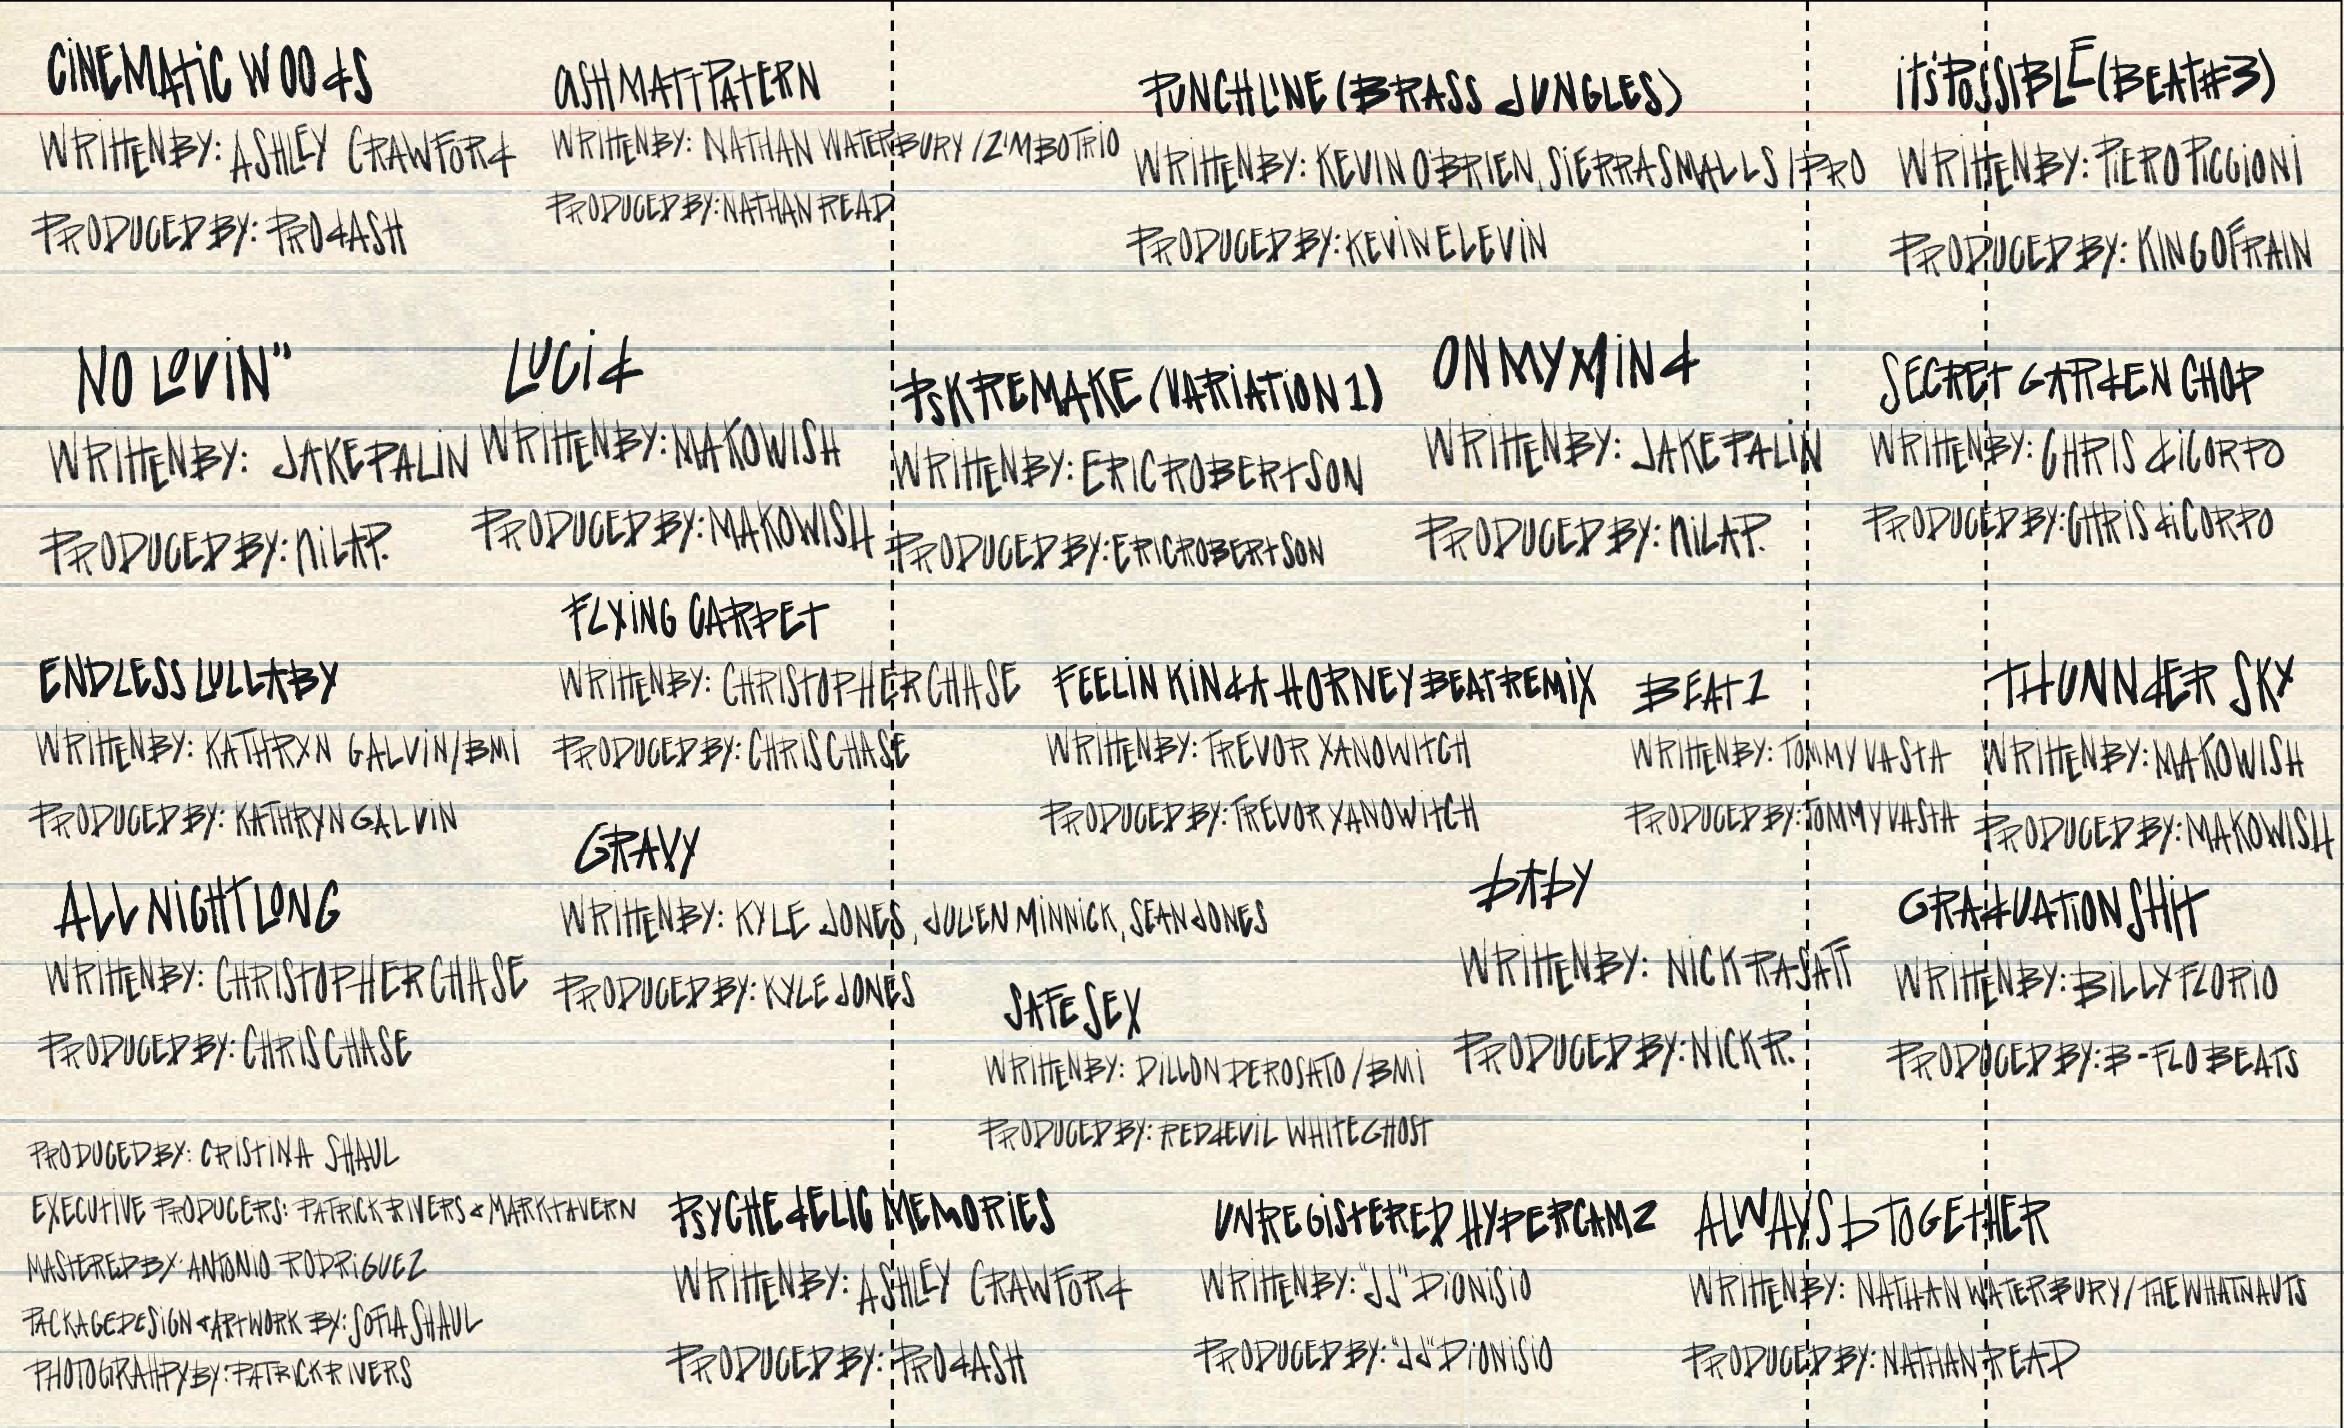 CINEMATIC WOODS
WRITTEN BY: ASHLEY CRAWFORD
PRODUCED BY: PRODASH
ASH MATT PATERN
WRITTEN BY: NATHAN WATERBURY / ZIMBO TRIO
PRODUCED BY: NATHAN READ
PUNCHLINE (BRASS JUNGLES)
WRITTEN BY: KEVIN O'BRIEN, SIERRA SMALLS / PRO
PRODUCED BY: KEVIN ELEVIN
ITS POSSIBLE (BEAT #3)
WRITTEN BY: PIERO PICCIONI
PRODUCED BY: KING OF RAIN
NO LOVIN"
WRITTEN BY: JAKE PALIN
PRODUCED BY: NILAP.
LUCID
WRITTEN BY: MAKOWISH
PRODUCED BY: MAKOWISH
PSK REMAKE (VARIATION 1)
WRITTEN BY: ERIC ROBERTSON
PRODUCED BY: ERIC ROBERTSON
ON MY MIND
WRITTEN BY: JAKE PALIN
PRODUCED BY: NILAP.
SECRET GARDEN CHOP
WRITTEN BY: CHRIS DICORPO
PRODUCED BY: CHRIS DICORPO
ENDLESS LULLABY
WRITTEN BY: KATHRYN GALVIN/BMI
PRODUCED BY: KATHRYN GALVIN
FLYING CARPET
WRITTEN BY: CHRISTOPHER CHASE
PRODUCED BY: CHRIS CHASE
FEELIN KINDA HORNEY BEAT REMIX
WRITTEN BY: TREVOR YANOWITCH
PRODUCED BY: TREVOR YANOWITCH
BEAT 2
WRITTEN BY: TOMMY VASTA
PRODUCED BY: TOMMY VASTA
THUNNDER SKY
WRITTEN BY: MAKOWISH
PRODUCED BY: MAKOWISH
ALL NIGHT LONG
WRITTEN BY: CHRISTOPHER CHASE
PRODUCED BY: CHRIS CHASE
GRAVY
WRITTEN BY: KYLE JONES, JULIEN MINNICK, SEAN JONES
PRODUCED BY: KYLE JONES
SAFE SEX
WRITTEN BY: DILLON DEROSATO / BMI
PRODUCED BY: REDDEVIL WHITEGHOST
BABY
WRITTEN BY: NICK RASATT
PRODUCED BY: NICK R.
GRADUATION SHIT
WRITTEN BY: BILLY FLORIO
PRODUCED BY: B-FLO BEATS
PRODUCED BY: CRISTINA SHAUL
EXECUTIVE PRODUCERS: PATRICK RIVERS & MARK TAVERN
MASTERED BY: ANTONIO RODRIGUEZ
PACKAGE DESIGN & ARTWORK BY: SOFIA SHAUL
PHOTOGRAHPY BY: PATRICK RIVERS
PSYCHEDELIC MEMORIES
WRITTEN BY: ASHLEY CRAWFORD
PRODUCED BY: PRODASH
UNREGISTERED HYPERCAM 2
WRITTEN BY: "JJ" DIONISIO
PRODUCED BY: "JJ" DIONISIO
ALWAYS B TOGETHER
WRITTEN BY: NATHAN WATERBURY / THE WHATNAUTS
PRODUCED BY: NATHAN READ